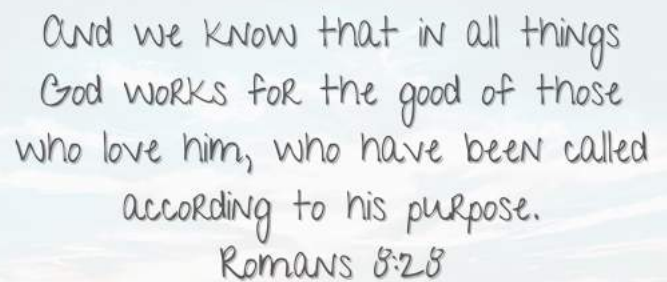 And we know that in all things
God works for the good of those
who love him, who have been called
according to his purpose.
Romans 8:28